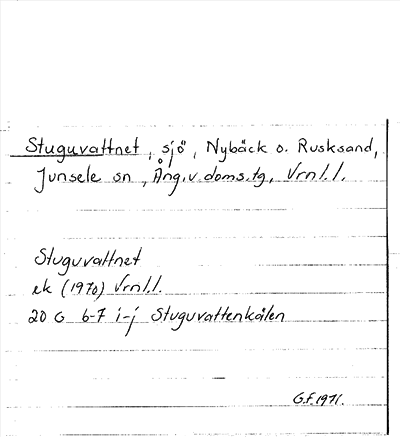 Stuguvattnet, sjö, Nybäck o. Rusksand,
Junsele sn, Ång.v.doms.tg, Vrnl.l.
Stuguvattnet
ek (1970) Vrnl.l.
20 G 6-7 i-j Stuguvattenkålen
G.F. 1971.